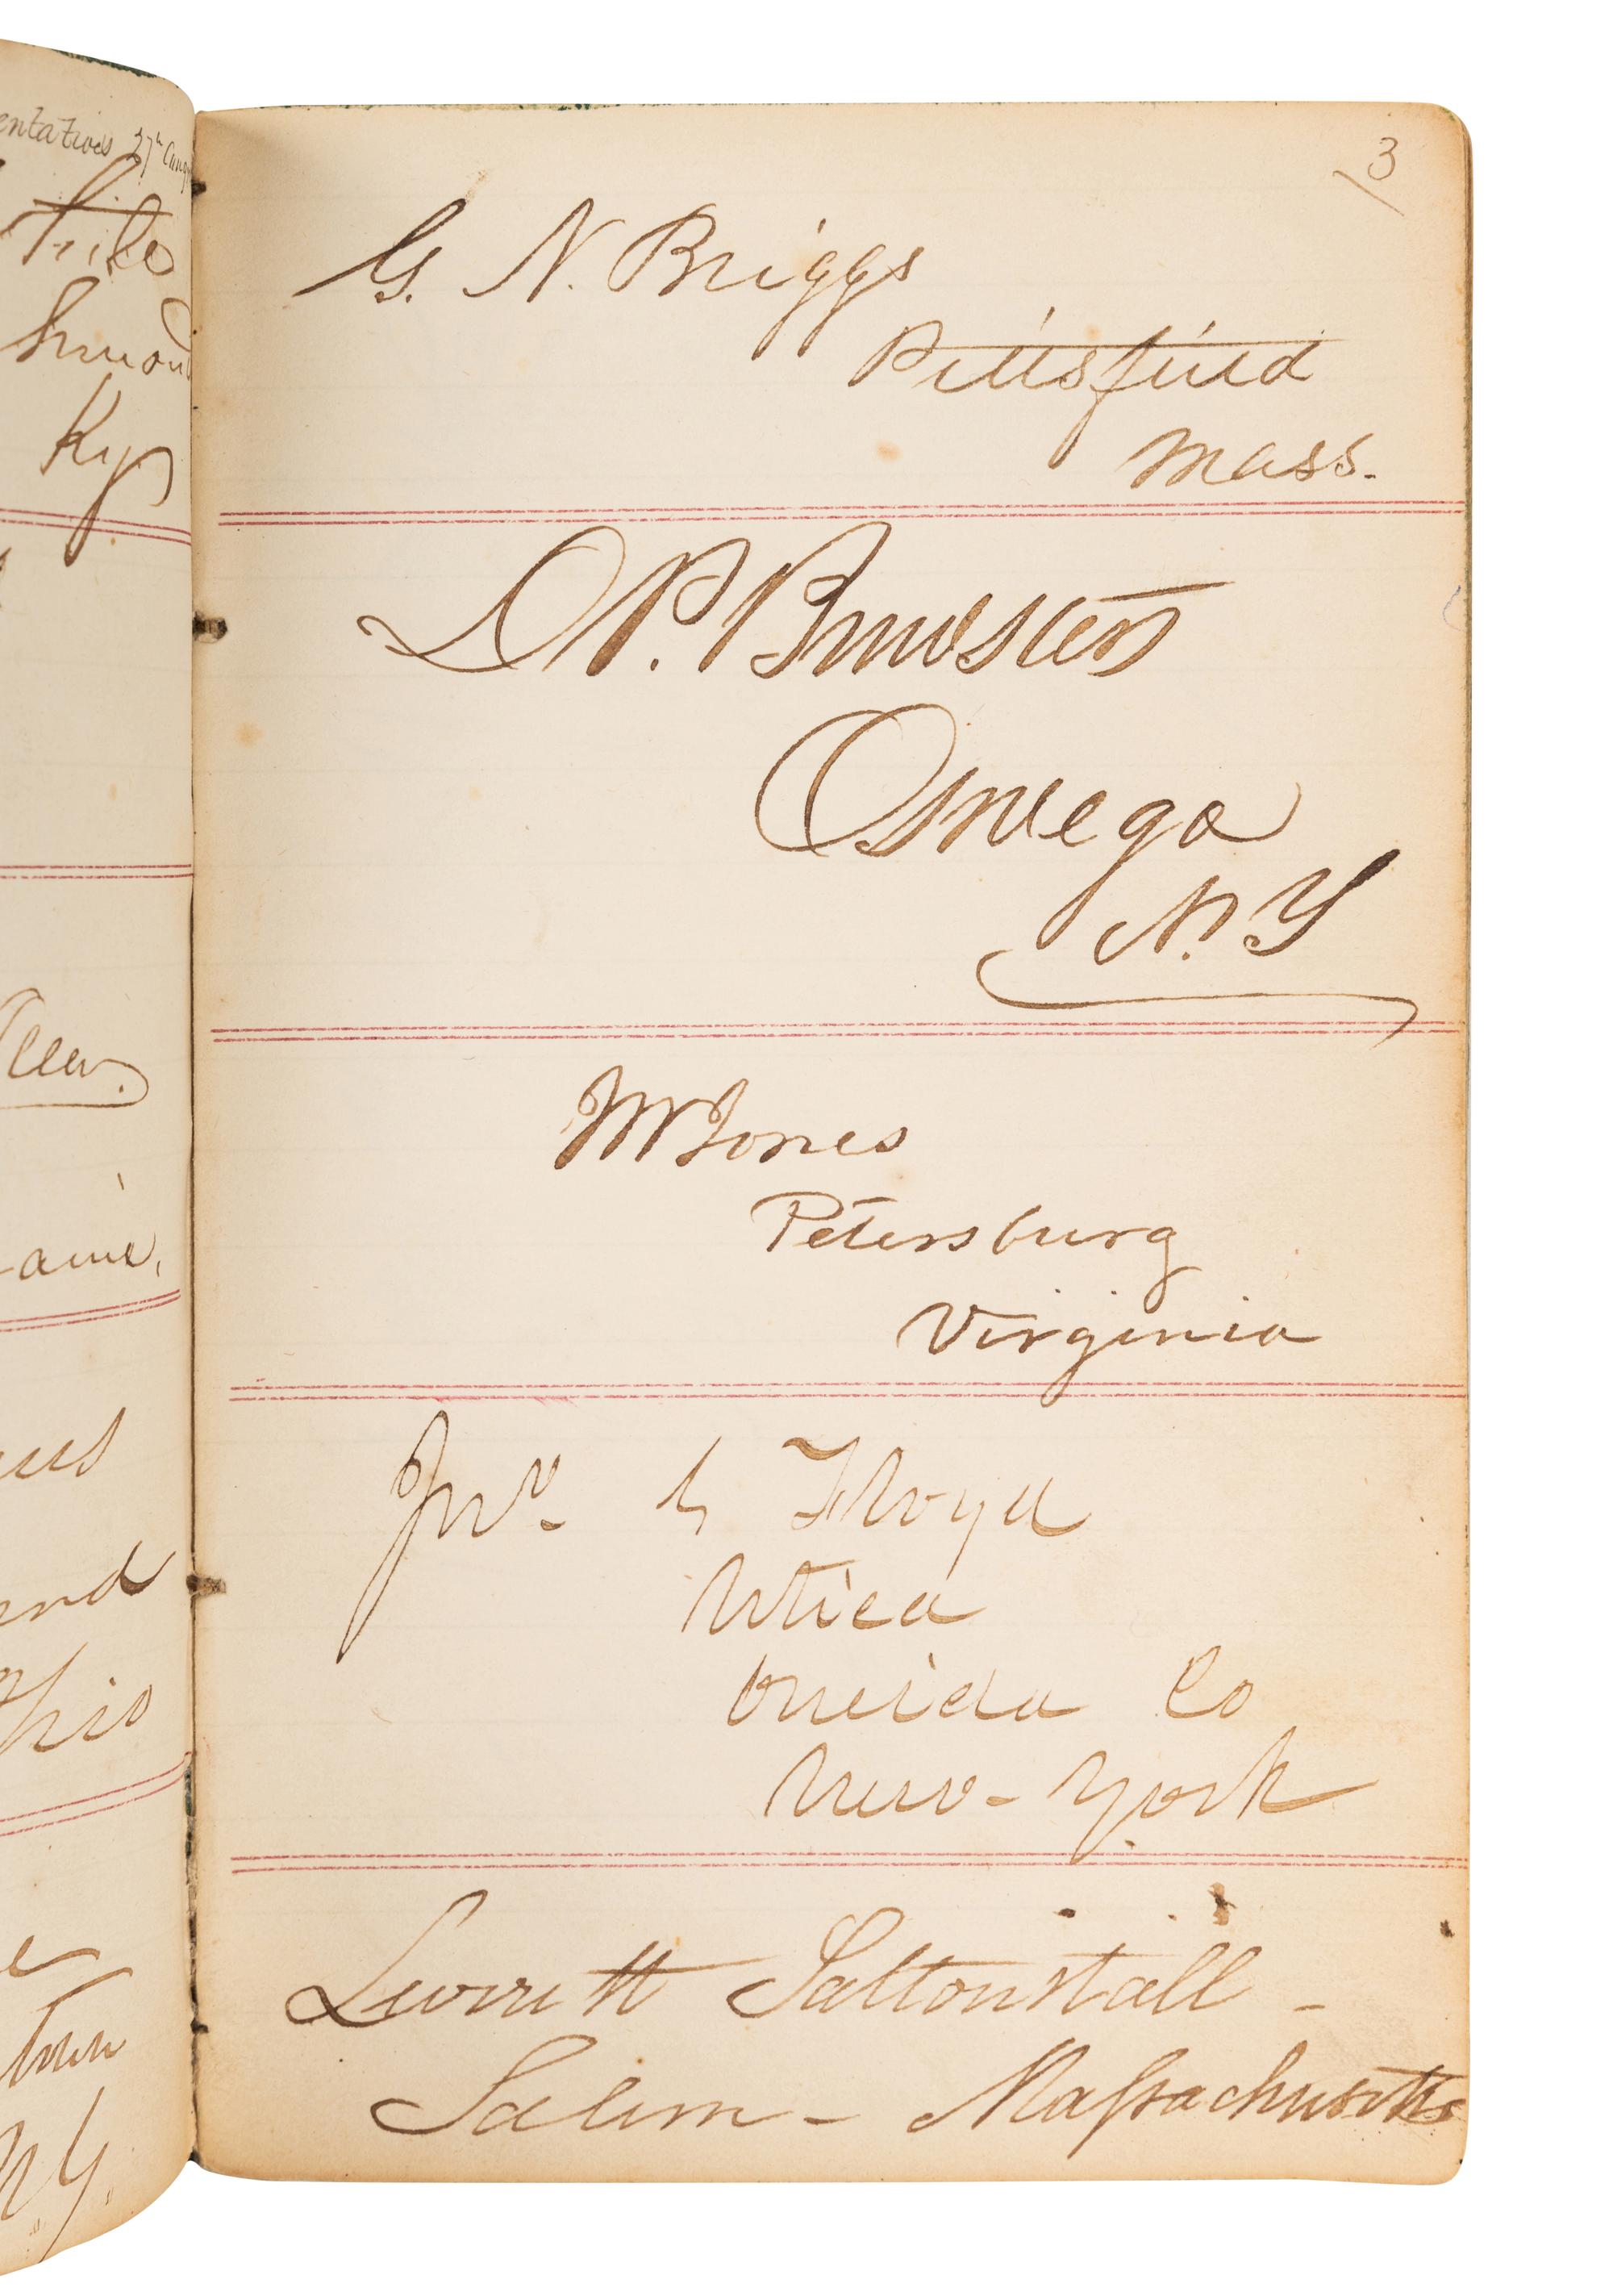 entatives 27th Cong
Ky
aine,
Ohio
N.Y.
3
G. N. Briggs
Pittsfield
Mass.
D. P. Brewster
Oswego
N. Y
JW Jones
Petersburg
Virginia
Jno. G Floyd
Utica
Oneida Co
New-York
Leverett Saltonstall -
Salem - Massachusetts